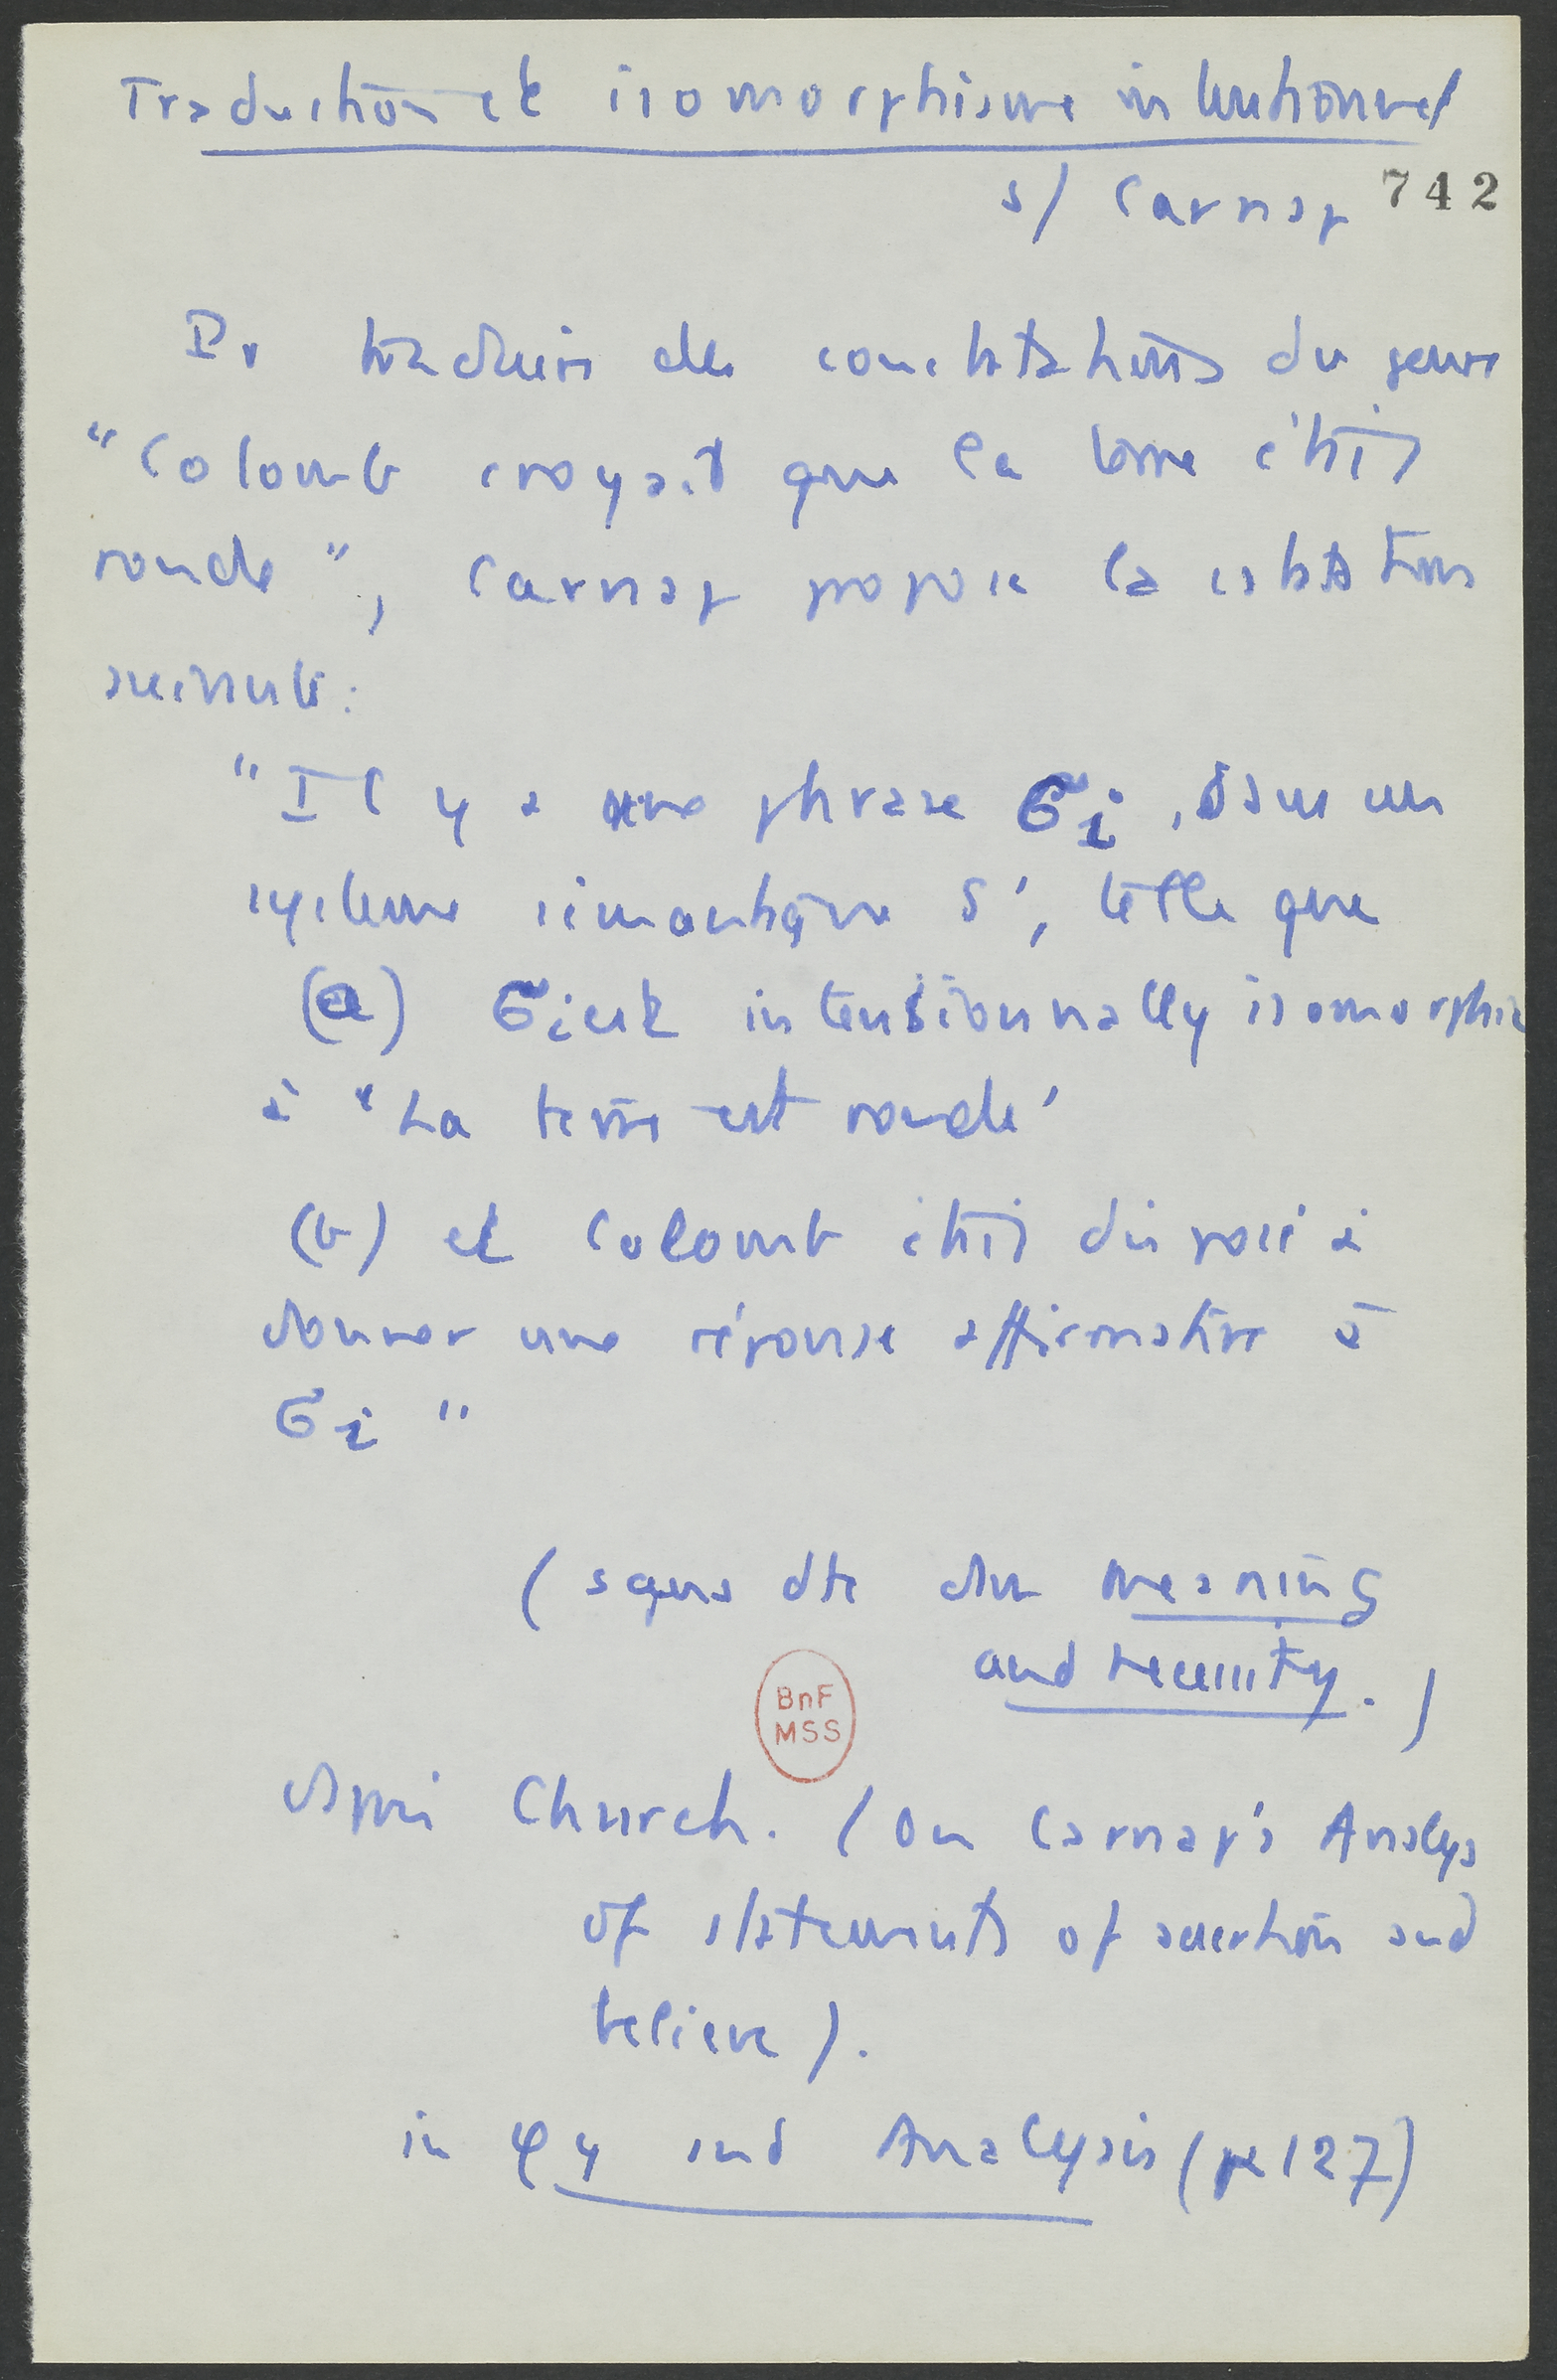 Traduction et isomorphisme intentionnel
s/ Carnap 742
Pr traduire des constatations du genre
"Colomb croyait que la terre était
ronde", Carnap propose la
suivante:
"Il y a une phrase Ϭi, dans un
système sémantique S', telle que
(a) Ϭi est intensionnally isomorphic
à "La terre est ronde'
(b) et Colomb était disposé à
donner une réponse affirmative à
Ϭi"
(dte du Meaning
and Necessity.)
Après Church. (On Carnap's Analys
of statements of assertion and
believe).
BnF
MSS
in φy and Analysis (p 127)